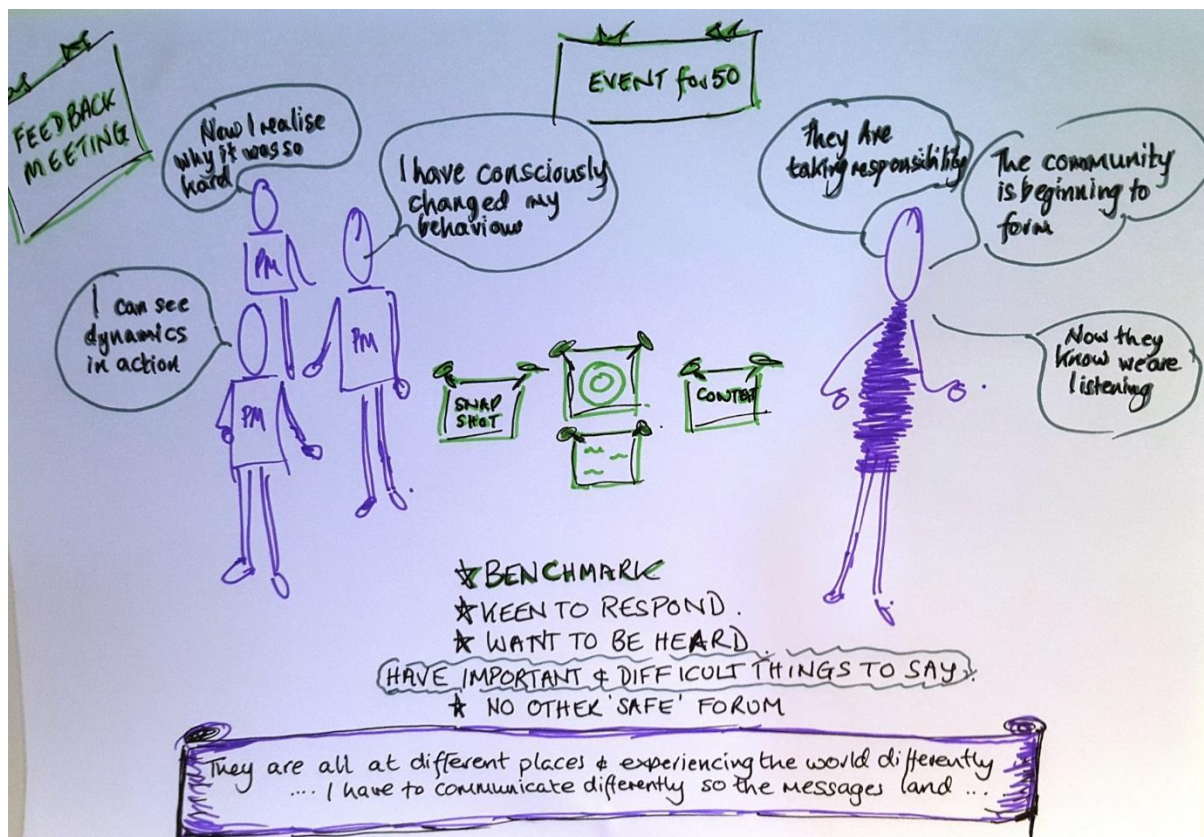 FEEDBACK
MEETING
EVENT for 50
Now I realise
why it was so
hard
I have consciously
changed my
behaviour
I can see
dynamics
in action
PM
PM
PM
They Are
taking responsibility
The community
is beginning to
form
Now they
know we are
listening
SNAP
SHOT
BENCHMARK
KEEN TO RESPOND.
WANT TO BE HEARD.
HAVE IMPORTANT & DIFFICULT THINGS TO SAY.
NO OTHER 'SAFE' FORUM
They are all at different places & experiencing the world differently
.... I have to communicate differently so the messages land ...